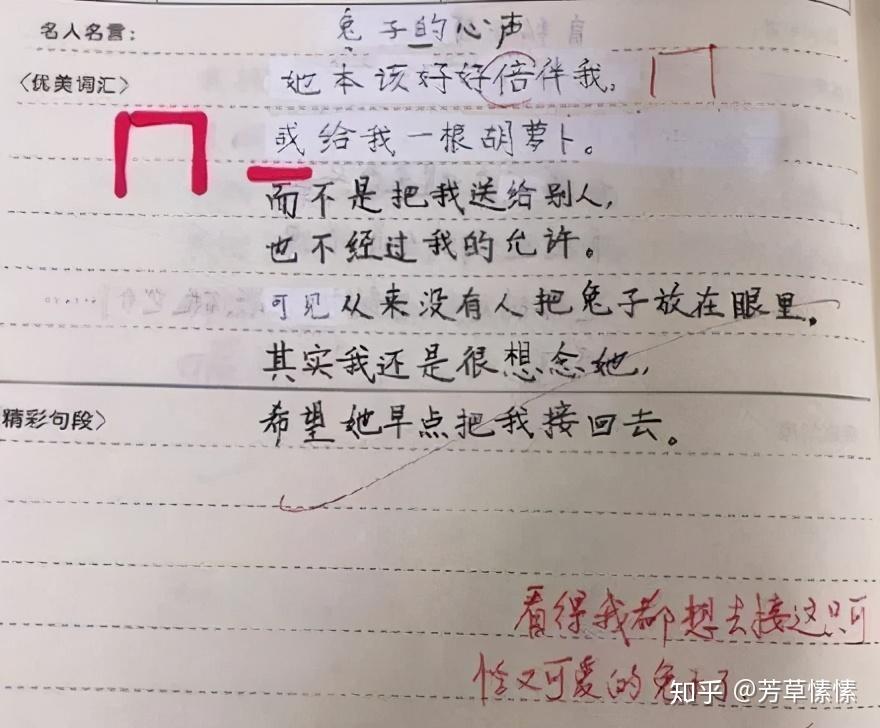 名人名言：
兔子的心声
〈优美词汇〉
她本该好好倍伴我，
或给我一根胡萝卜。
而不是把我送给别人，
也不经过我的允许。
可见从来没有人把兔子放在眼里，
其实我还是很想念她，
精彩句段〉
希望她早点把我接回去。
看得我都想去接这只可
怜又可爱的兔子了
知乎 @芳草愫愫